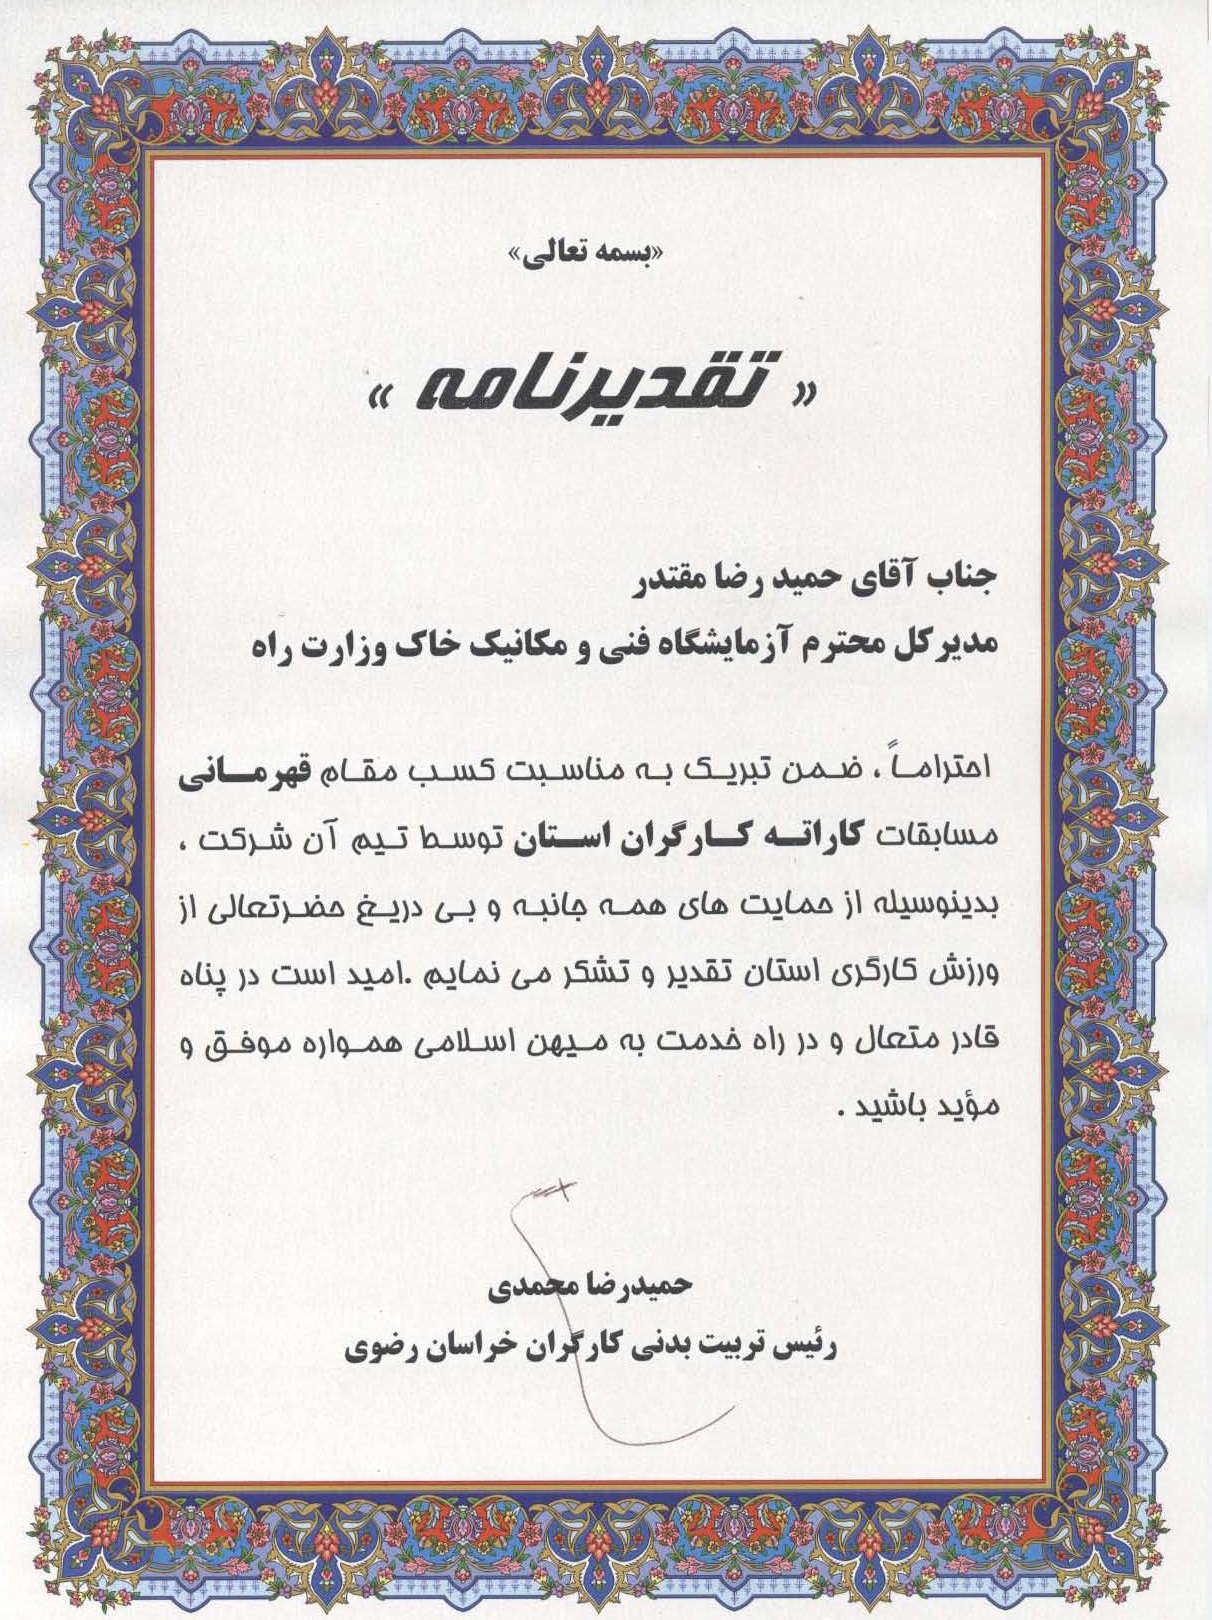 «بسمه تعالی»
« تقدیرنامه »
جناب آقای حمید رضا مقتدر
مدیرکل محترم آزمایشگاه فنی و مکانیک خاک وزارت راه
احتراماً ، ضمن تبریک به مناسبت کسب مقام قهرمانی
مسابقات کاراته کارگران استان توسط تیم آن شرکت ،
بدینوسیله از حمایت های همه جانبه و بی دریغ حضرتعالی از
ورزش کارگری استان تقدیر و تشکر می نمایم .امید است در پناه
قادر متعال و در راه خدمت به میهن اسلامی همواره موفق و
مؤید باشید .
حمیدرضا محمدی
رئیس تربیت بدنی کارگران خراسان رضوی